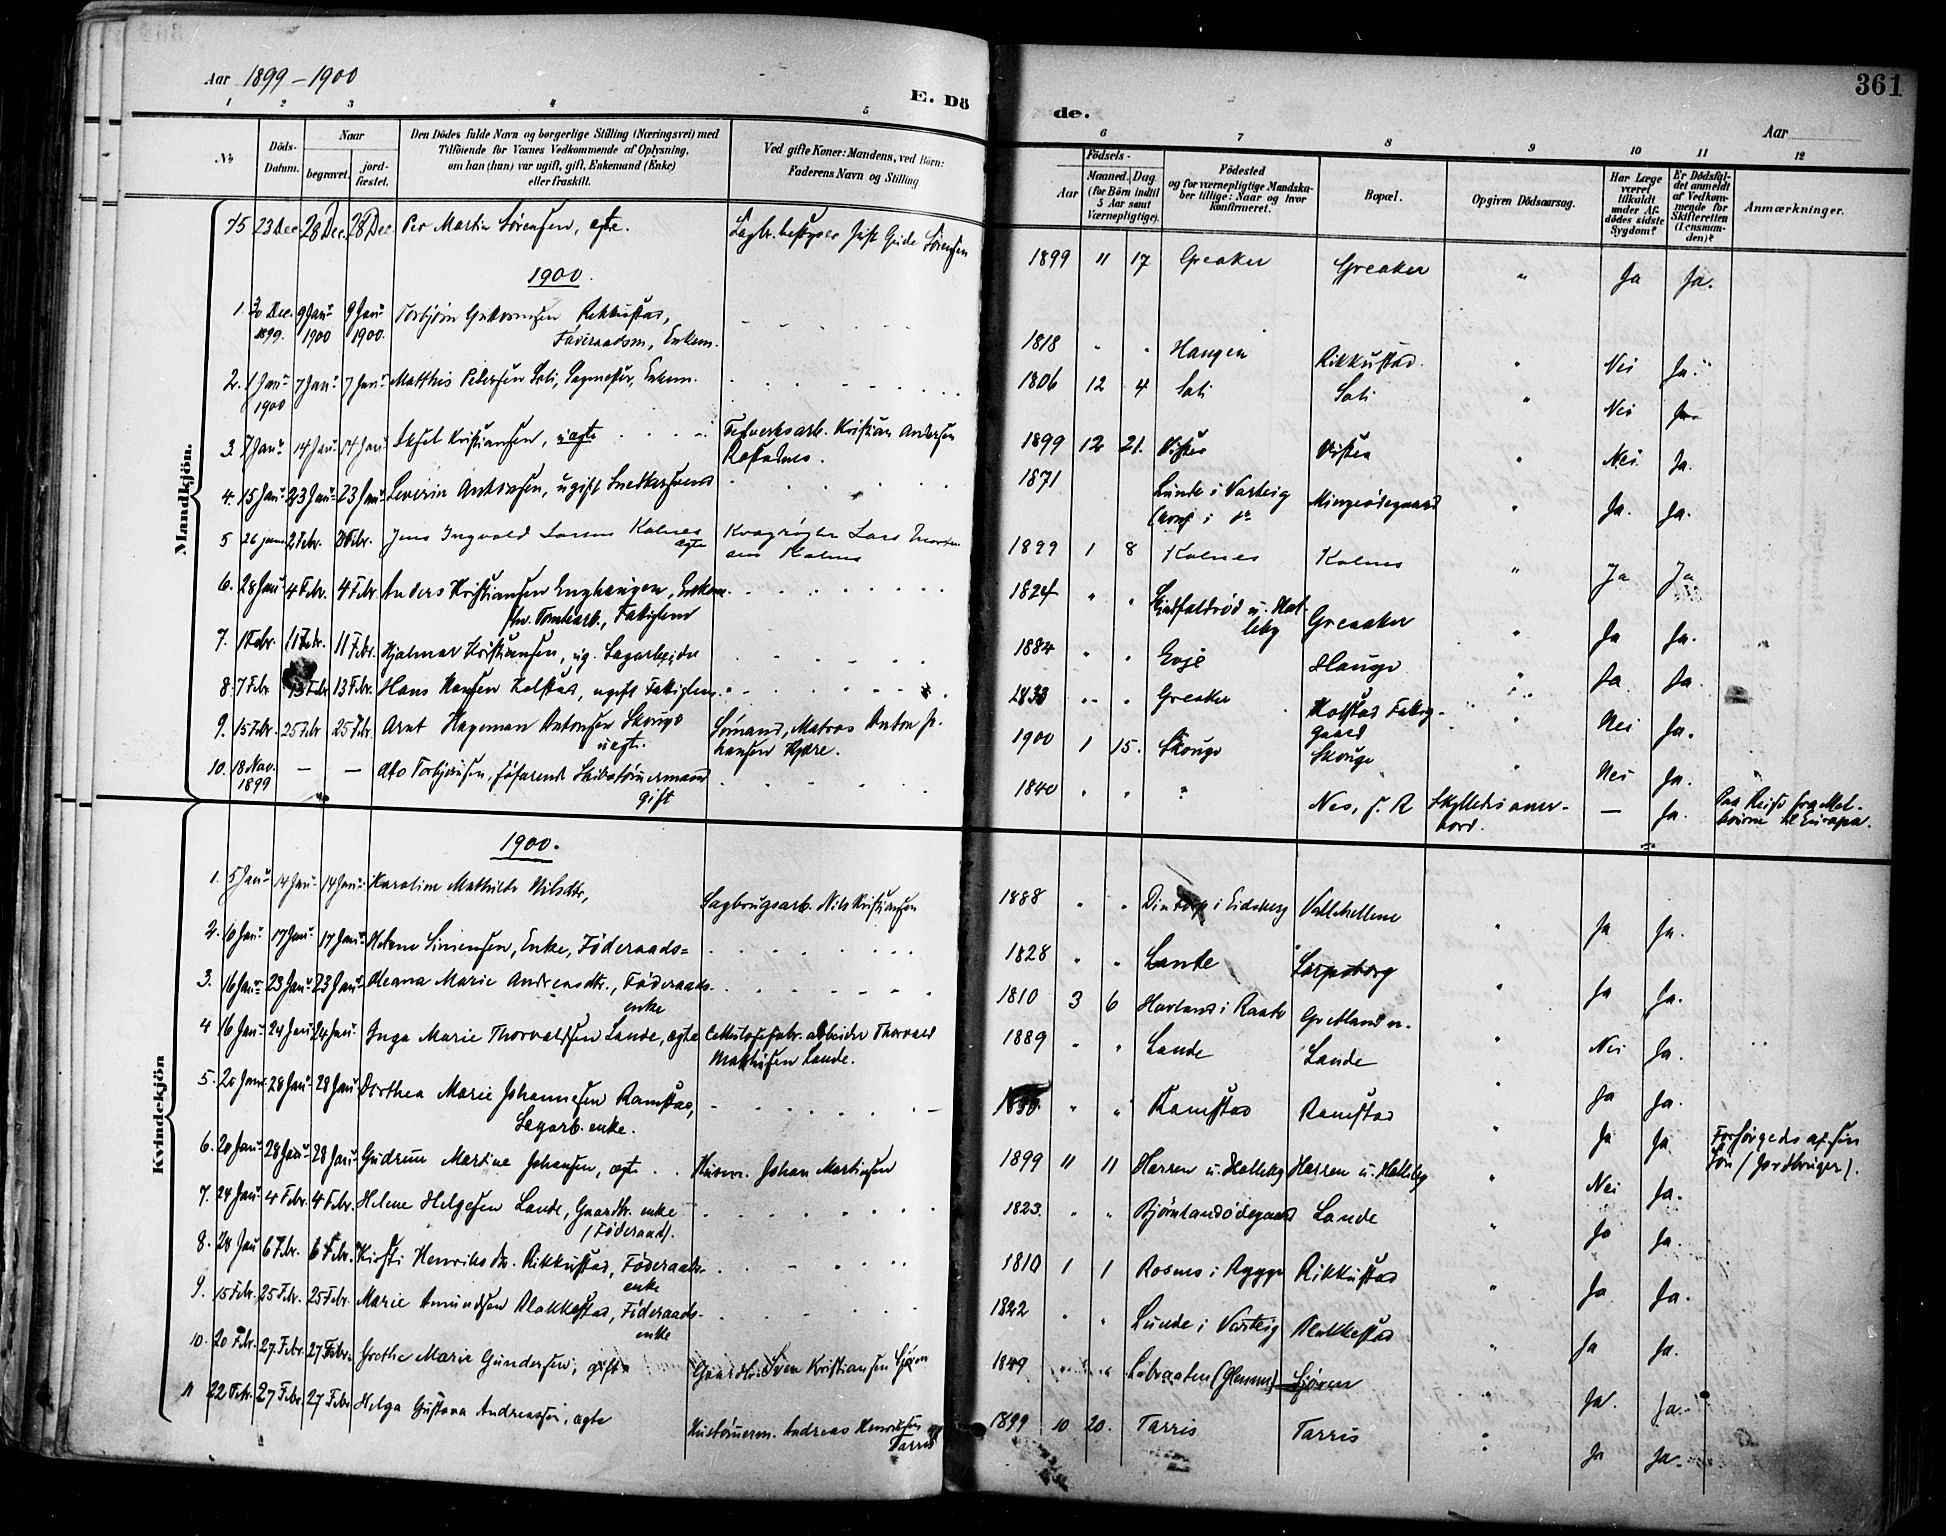 Aar 1899-1900
E. Dö
de.
361
Aar
1 2 3 4 5 6 7 8 9 10 11 12
No
Döds-Datum.
Naar
begravet.
jord-fæstet.
Den Dödes fulde Navn og borgerlige Stilling (Næringsvei) med
Tilföiende for Voxnes Vedkommende af Oplysning,
om han (hun) var ugift, gift, Enkemand (Enke)
eller fraskilt.
Ved gifte Koner: Mandens, ved Börn:
Faderens Navn og Stilling
Födsels-
Aar
Maaned. Dag.
(for Börn indtil
5 Aar samt
Værnepligtige).
Födested
og for værnepligtige Mandska-
ber tillige: Naar og hvor
konfirmeret.
Bopæl.
Opgiven Dödsaarsag.
Har Læge
været
tilkaldt
under Af-
dödes sidste
Sygdom?
Er Dödsfal-
det anmeldt
af Vedkom-
mende for
Skifteretten
(Lensman-
den)?
Anmærkninger.
Mandkjön.
75 23 Dec 28 Dec. 28 Dec Per Martin Sørensen, ægte. 1899 11 17 Greaker Greaker " Ja Ja.
1900.
1. 30 Dec. 1899. 9 Janu 1900 9 Janu 1900. Torbjørn Rikkustad, Enkem. 1818 " " Haugen Rikkustad " Nei Ja.
2. 1 Janu 1900 7 Janu 7 Janu Matthis Pedersen Soli, Enkem. 1806 12 4 Soli Soli " Nei Ja
3. 7 Janu 14 Janu 14 Janu Kristiansen, uægte Kristian Andersen 1899 12 21. Visten Visten " Nei Ja.
4. 15 Janu 23 Janu 23 Janu Severin Antonsen, ugift Snedkersvend 1871 Lunde i Varteig Mingeødegaard " Ja. Ja.
5 26 janu Febr. Febr. Jens Ingvald Larsen Kalnes ægte Lars Kalnes 1899 1 8 Kalnes Kalnes " Ja Ja
6. 28 Janu 4 Febr. 4 Febr Anders Kristiansen Enghaugen, Enkem. 1824 " " Greaaker " Ja Ja.
7. 1 Febr. 11 Febr. 11 Febr. Hjalmar Kristiansen, ug. Sagarbeider 1884 " " Evje Hauge " Ja. Ja.
8. 7 Febr 13 Febr 13 Febr. Hans Hansen Kolstad, ugift Fattiglem 1833 " " Greaker Kolstad Fattig-
gaard Nei Ja.
9. 15 Febr. 25 Febr 25 Febr. Arnt Hageman Antonsen Skouge uægte. Sømand, Matros Anton Jo-
hansen Kjære. 1900 1 15. Skouge Skouge " Nei Ja.
10. 18 Nov. 1899 — — Torbjørnsen, søfarende Skibstømermand gift 1840 " " " Nes, s. R Skylledes over-
bord. — Ja. Paa Reise fra Mel-
bourne til Europa.
Kvindekjön
1900.
1. 5 Janu 14 Janu 14 Janu Karoline Mathilde Nilsdtr, Sagbrugsarb. Nils Kristiansen 1888 " " i Eidsberg Valdekellene " Ja Ja.
2. 10 Janu 17 Janu 17 Janu Helene Simensen, Enke, Føderaads= 1828 " " Lande Sarpsborg " Ja Ja.
3. 16 Janu 23 Janu 23 Janu Oleana Marie Andreasdtr., Føderaads-
enke 1810 3 6 Havland i Raade Gretland n. " Nei Ja.
4 16 Janu 24 Janu 24 Janu Inga Marie Thorvaldsen Lande, ægte Cellulosefabr. arbeider Thorvald
Mathisen Lande. 1889 " " Lande Lande " Ja Ja.
5. 20 Janu 28 Janu 28 Janu Dorthea Marie Johannesen Ramstad,
Sagarb. enke. " " Ramstad Ramstad " Ja Ja Forsørgedes af sin
Søn (Jordbruger).
6. 20 Janu 28 Janu 28 Janu Gudrun Martine Johansen, ægte Johan Martinsen 1899 11 11 Harren u. Halleby Harren u. Halleby " Nei Ja.
7. 24 Janu 4 Febr. 4 Febr. Helene Helgesen Lande, Gaardbr. enke
(Føderaad). 1823. " " Bjørnlandødegaard Lande " Ja Ja.
8. 28 Jan 6 Febr. 6 Febr. Kirsti Henriksdtr. Rikkustad, Føderaads-
enke 1810 1 1 Rosnes i Rygge Rikkustad " Ja Ja.
9. 15 Febr. 25 Febr. 25 Febr. Marie Amundsen Blakkestad, Føderaads-
enke 1822 " " Lunde i Varteig Blakkestad " Ja Ja.
10. 20 Febr. 27. Febr. 27 Febr. Grethe Marie Gundersen, gift Gaardbr. Sven Kristiansen 1849 " " (Glemmen) " Ja. Ja.
11 22 Febr. 27 Febr. 27 Febr Helga Gustava Andreassen, ægte Hustømerm. Andreas Henriksen
Tarris 1899 10 20. Tarris Tarris " Ja Ja.